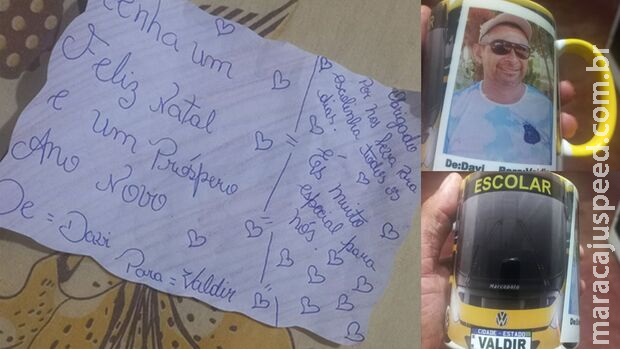 Tenha um
Feliz Natal
e um Próspero
Ano Novo
De = Davi Para = Valdir
Obrigado
Por nos leva Pra
Escolinha todos os
dias.
És muito
especial para
nós.
De:Davi Para:Valdir
ESCOLAR
Marcopolo
CIDADE - ESTADO
VALDIR
maracajuspeed.com.br